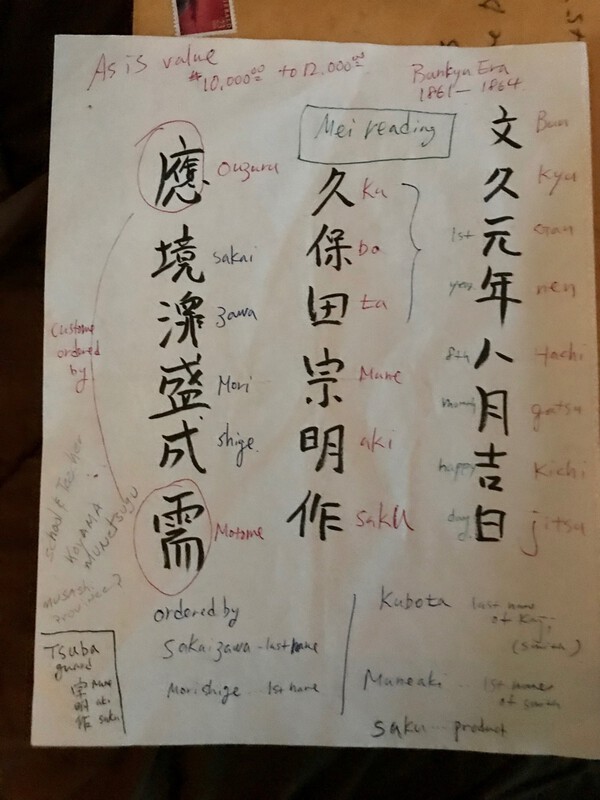 As is value
$10,000.00 to 12,000.00
Bunkyu Era
1861 — 1864
Mei reading
文 Bun
久 Kyu
1st 元 Gan
year 年 nen
8th 八 Hachi
month 月 gatsu
happy 吉 Kichi
day 日 jitsu
久 Ku
保 bo
田 ta
宗 Mune
明 aki
作 saku
應 Ouzuru
境 sakai
澤 zawa
盛 Mori
成 shige
需 Motome
Custome
ordered
by
School & Teacher
KOYAMA
MUNETSUGU
Musashi
Province?
ordered by
Sakaizawa -- last name
Morishige ... 1st name
Kubota last name
of Kaji
(smith)
Muneaki ... 1st name
of smith
saku ... product
Tsuba
guard
宗 Mune
明 aki
作 saku